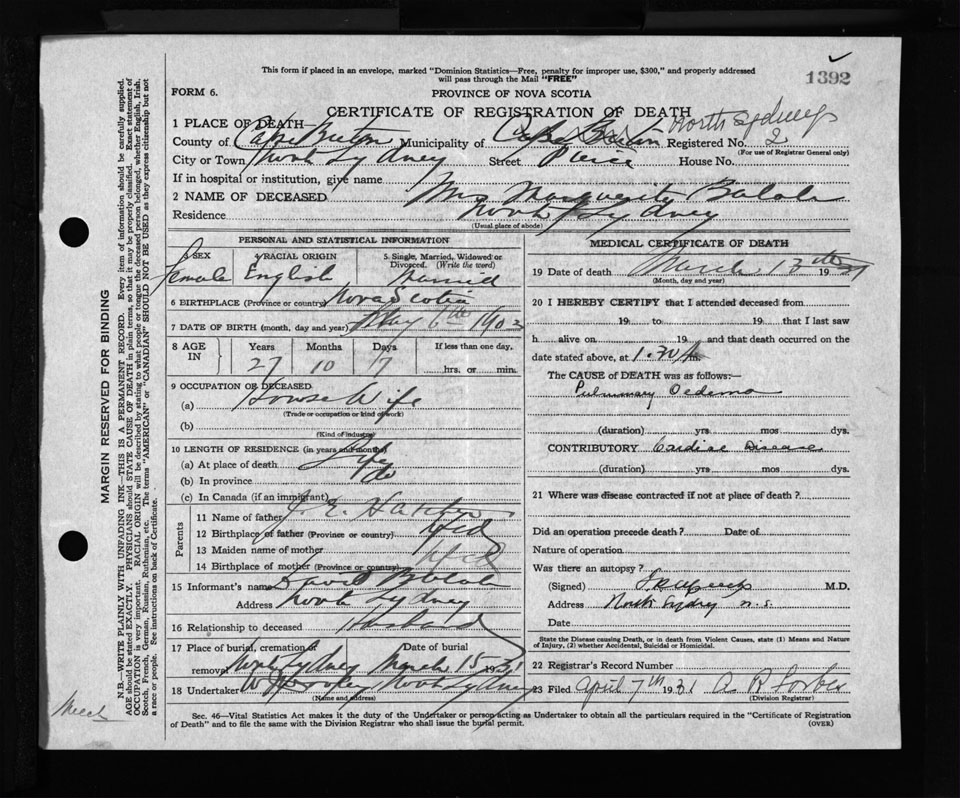 This form if placed in an envelope, marked "Dominion Statistics—Free, penalty for improper use, $300," and properly addressed
will pass through the Mail "FREE"
1392
FORM 6.
PROVINCE OF NOVA SCOTIA
CERTIFICATE OF REGISTRATION OF DEATH
1 PLACE OF DEATH—
North Sydney
County of Cape Breton Municipality of Cape Breton Registered No. 2
(For use of Registrar General only)
City or Town North Sydney Street Pierce House No.
If in hospital or institution, give name
2 NAME OF DECEASED Mrs
Residence North Sydney
(Usual place of abode)
PERSONAL AND STATISTICAL INFORMATION
3 SEX 4 RACIAL ORIGIN 5. Single, Married, Widowed or Divorced. (Write the word)
Female English Married
6 BIRTHPLACE (Province or country) Nova Scotia
7 DATE OF BIRTH (month, day and year) May 6th 1903
8 AGE IN Years Months Days If less than one day.
27 10 7 hrs. or min.
9 OCCUPATION OF DECEASED
(a) House Wife
(Trade or occupation or kind of work)
(b)
(Kind of industry)
10 LENGTH OF RESIDENCE (in years and months)
(a) At place of death Life
(b) In province do
(c) In Canada (if an immigrant)
Parents
11 Name of father J. E.
12 Birthplace of father (Province or country) Nfld
13 Maiden name of mother
14 Birthplace of mother (Province or country) Nfld
15 Informant's name David
Address North Sydney
16 Relationship to deceased Husband
17 Place of burial, cremation or removal Date of burial
North Sydney March 15 1931
18 Undertaker North Sydney
(Name and address)
MEDICAL CERTIFICATE OF DEATH
19 Date of death March 13th 1931
(Month, day and year)
20 I HEREBY CERTIFY that I attended deceased from
19 to 19 that I last saw
h alive on 19 and that death occurred on the
date stated above, at 1.30
The CAUSE of DEATH was as follows:—
Pulmonary Oedema
(duration) yrs mos dys.
CONTRIBUTORY Cardiac Disease
(duration) yrs. mos dys.
21 Where was disease contracted if not at place of death?
Did an operation precede death? Date of
Nature of operation
Was there an autopsy?
(Signed) M.D.
Address North Sydney N.S.
Date
State the Disease causing Death, or in death from Violent Causes, state (1) Means and Nature of Injury, (2) whether Accidental, Suicidal or Homicidal.
22 Registrar's Record Number
23 Filed April 7th 1931 A R Forbes
(Division Registrar)
Sec. 46—Vital Statistics Act makes it the duty of the Undertaker or person acting as Undertaker to obtain all the particulars required in the "Certificate of Registration
of Death" and to file the same with the Division Registrar who shall issue the burial permit.
(OVER)
MARGIN RESERVED FOR BINDING
N.B.—WRITE PLAINLY WITH UNFADING INK—THIS IS A PERMANENT RECORD. Every item of information should be carefully supplied.
AGE should be stated EXACTLY. PHYSICIANS should STATE CAUSE OF DEATH in plain terms, so that it may be properly classified. Exact statement of
OCCUPATION is very important. RACIAL ORIGIN will be described by stating to what people or tongue the deceased person belonged, whether English, Irish,
Scotch, French, German, Russian, Ruthenian, etc. The terms "AMERICAN" or "CANADIAN" SHOULD NOT BE USED as they express citizenship but not
a race or people. See instructions on back of Certificate.